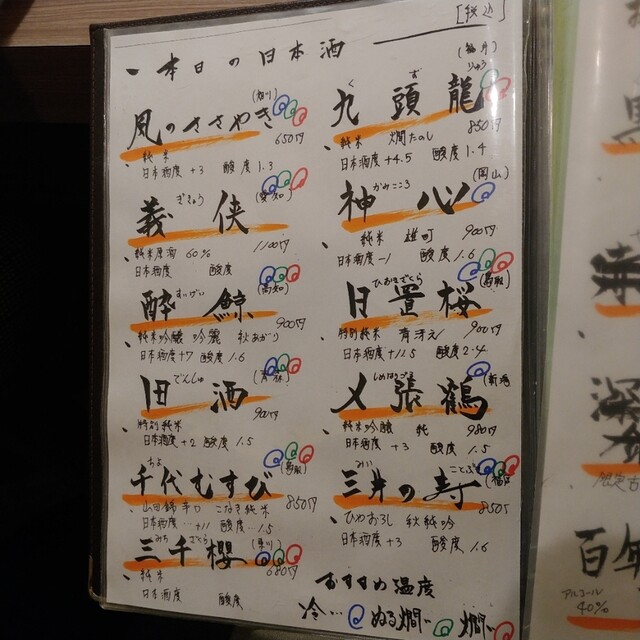 [税込]
一本日の日本酒
(香川)
風のささやき 650円
純米
日本酒度 +3 酸度 1.3
ぎきょう (愛知)
義侠 1100円
純米原酒 60%
日本酒度 酸度
すいげい (高知)
酔鯨 900円
純米吟醸 吟麗 秋あがり
日本酒度 +7 酸度 1.6
でんしゅ (青森)
田酒 900円
特別純米
日本酒度 +2 酸度 1.5
ちよ (鳥取)
千代むすび 850円
山田錦 辛口 こなき純米
日本酒度…+11 酸度…1.5
みち ざくら
三千櫻 680円
純米
日本酒度 酸度
(福井)
く ず りゅう
九頭龍 850円
純米 燗たのし
日本酒度 +4.5 酸度 1.4
(岡山)
かみこころ
神心 900円
純米 雄町
日本酒度 -1 酸度 1.6
ひおきざくら (鳥取)
日置桜 900円
特別純米 青冴え
日本酒度 +11.5 酸度 2.4
しめはりつる (新潟)
〆張鶴 980円
純米吟醸 純
日本酒度 +3 酸度 1.5
みい ことぶき (福岡)
三井の寿 850円
ひやおろし 秋純吟
日本酒度 +3 酸度 1.6
おすすめ温度
冷… ぬる燗… 燗…
百年
アルコール
40%